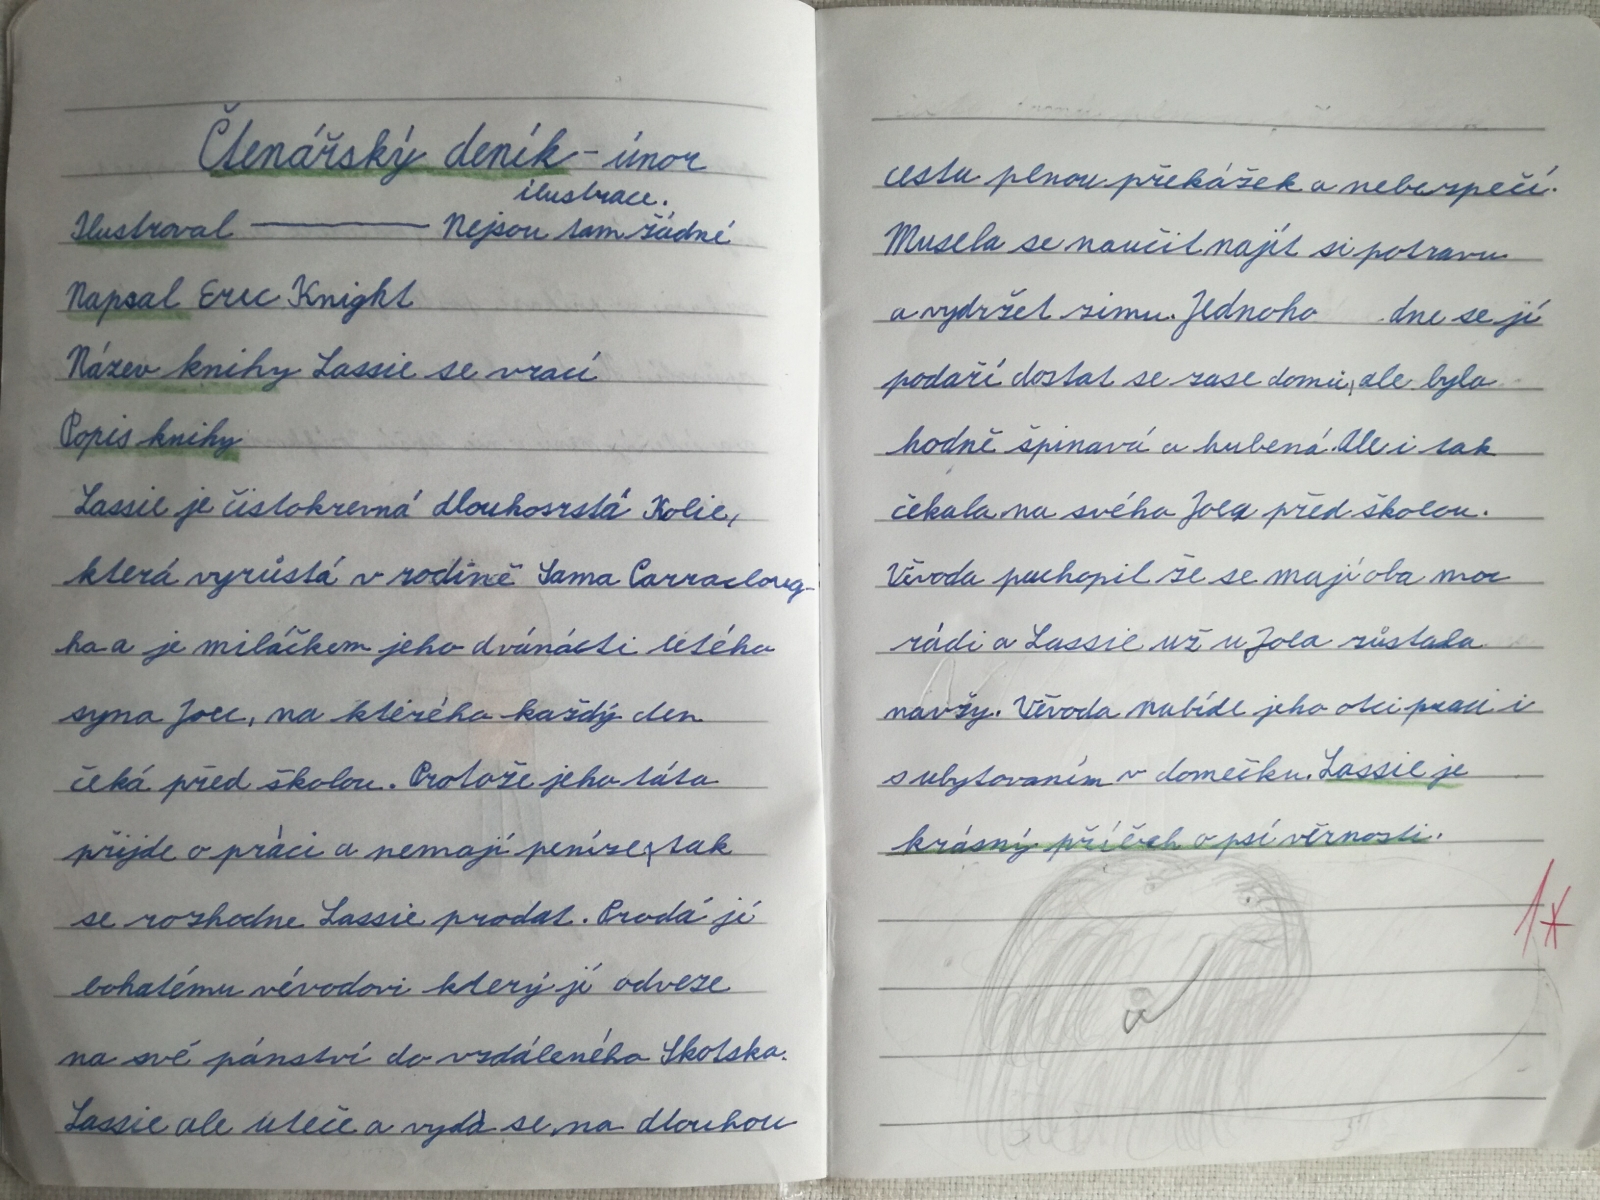 Čtenářský deník - únor
ilustrace.
Ilustroval ——— Nejsou tam žádné
Napsal Eric Knight
Název knihy Lassie se vrací
Popis knihy
Lassie je čistokrevná dlouhosrstá Kolie,
která vyrůstá v rodině Sama Carracloug-
ha a je miláčkem jeho dvánácti letého
syna Joee, na kterého každý den
čeká před školou. Protože jeho táta
přijde o práci a nemají peníze, tak
se rozhodne Lassie prodat. Prodá jí
bohatému vévodovi který jí odveze
na své pánství do vzdáleného Skotska.
Lassie ale uteče a vydá se na dlouhou
cestu plnou překážek a nebezpečí.
Musela se naučit najít si potravu
a vydržet zimu. Jednoho dne se jí
podaří dostat se zase domů, ale byla
hodně špinavá a hubená. Ale i tak
čekala na svého Joea před školou.
Vévoda pochopil že se mají oba moc
rádi a Lassie už u Joea zůstala
navžy. Vévoda nabíde jeho otci praci i
s ubytovaním v domečku. Lassie je
krásný příběh o psí věrnosti.
1*